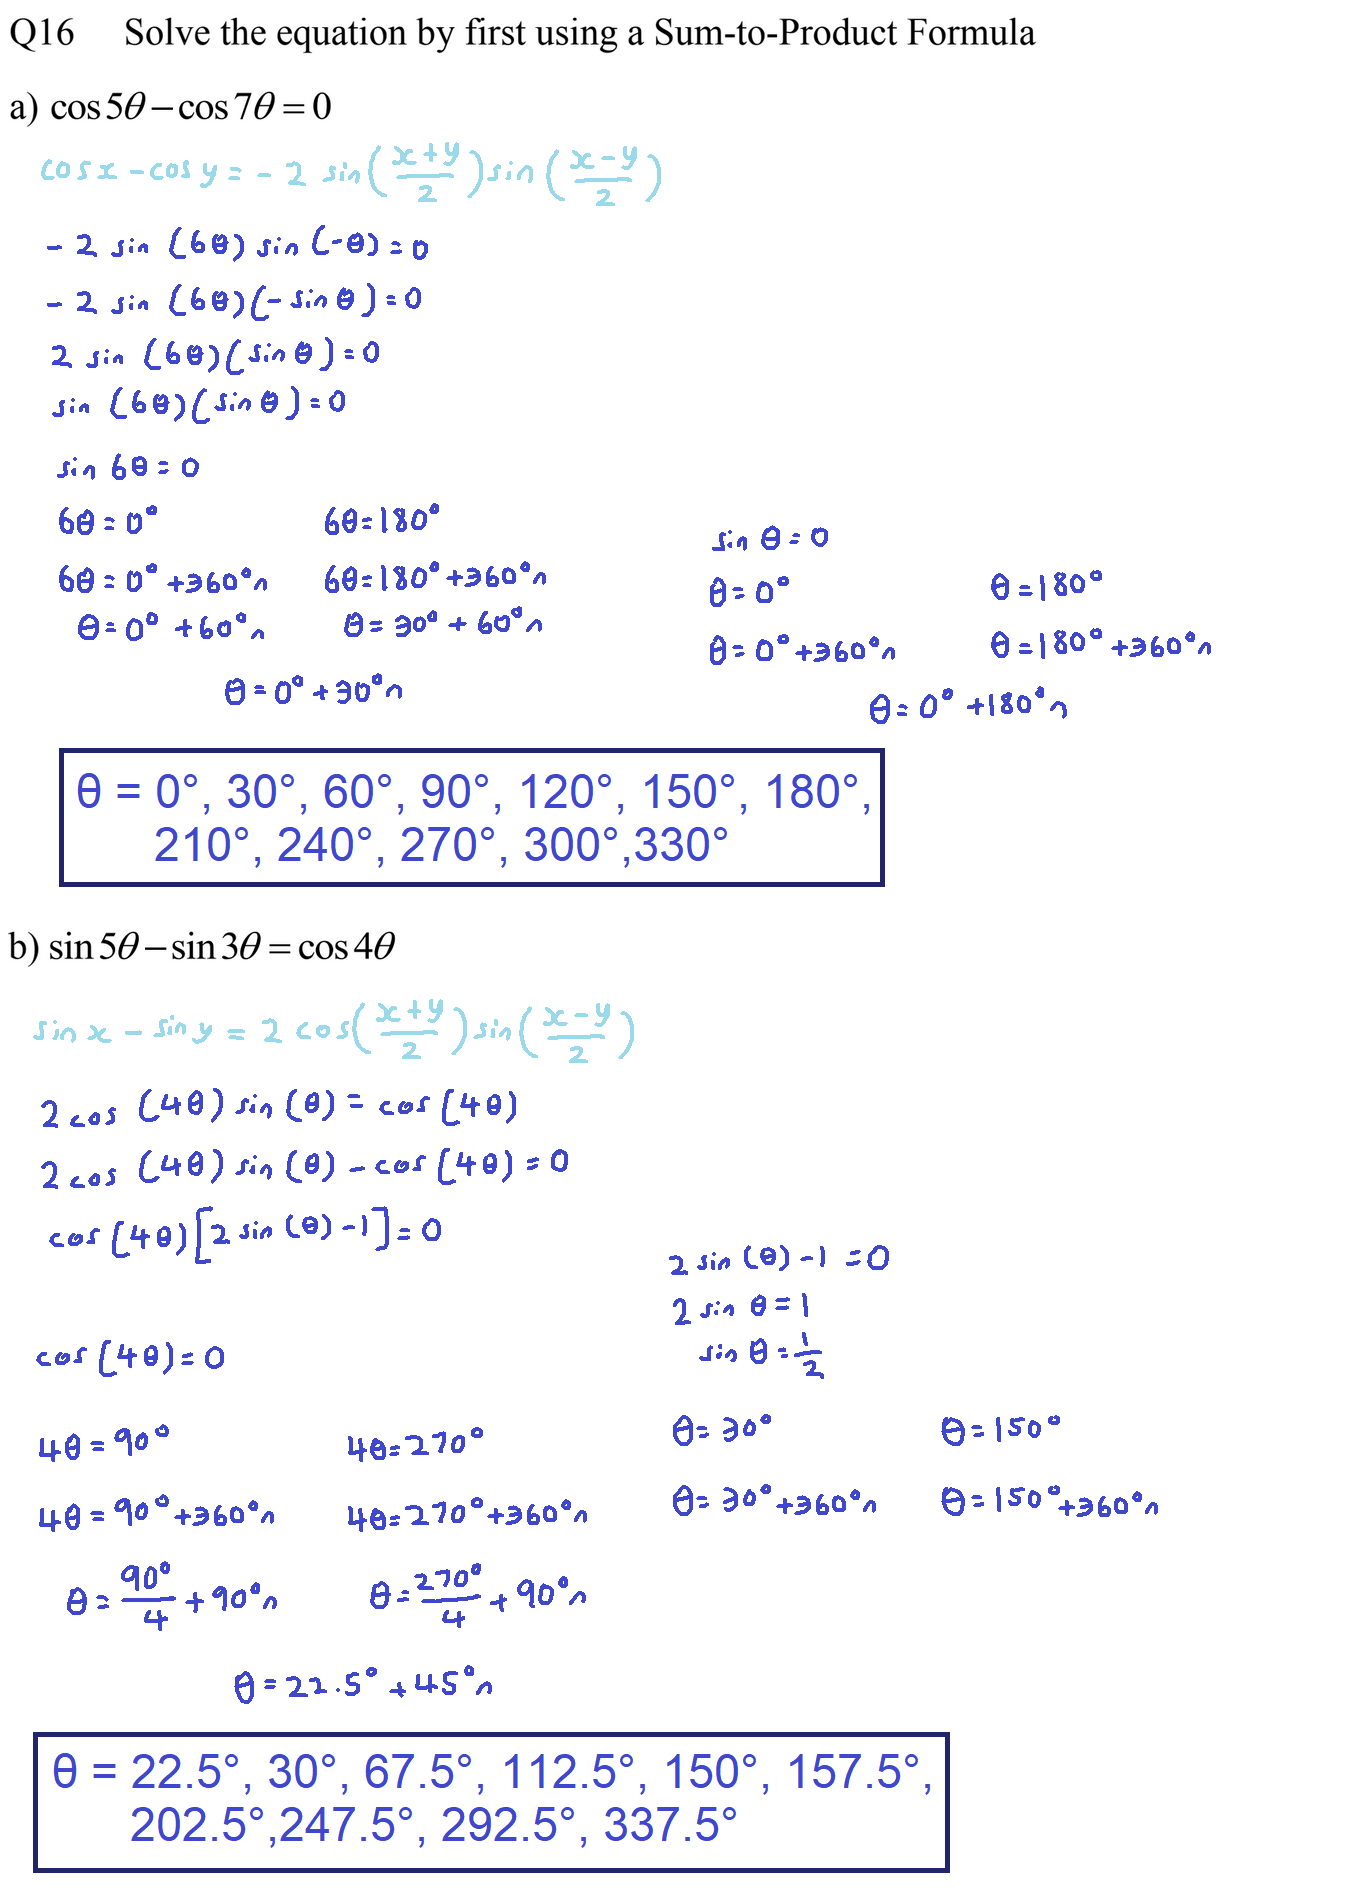 Q16 Solve the equation by first using a Sum-to-Product Formula
a) cos 5θ – cos 7θ = 0
cos x - cos y = - 2 sin((x+y)/2) sin((x-y)/2)
- 2 sin (6θ) sin (-θ) = 0
- 2 sin (6θ)(- sin θ) = 0
2 sin (6θ)(sin θ) = 0
sin (6θ)(sin θ) = 0
sin 6θ = 0
6θ = 0° 6θ = 180°
6θ = 0° + 360°n 6θ = 180° + 360°n
θ = 0° + 60°n θ = 30° + 60°n
θ = 0° + 30°n
sin θ = 0
θ = 0° θ = 180°
θ = 0° + 360°n θ = 180° + 360°n
θ = 0° + 180°n
θ = 0°, 30°, 60°, 90°, 120°, 150°, 180°,
210°, 240°, 270°, 300°,330°
b) sin 5θ – sin 3θ = cos 4θ
sin x - sin y = 2 cos((x+y)/2) sin((x-y)/2)
2 cos (4θ) sin (θ) = cos (4θ)
2 cos (4θ) sin (θ) - cos (4θ) = 0
cos (4θ)[2 sin (θ) - 1] = 0
cos (4θ) = 0
4θ = 90° 4θ = 270°
4θ = 90° + 360°n 4θ = 270° + 360°n
θ = 90°/4 + 90°n θ = 270°/4 + 90°n
θ = 22.5° + 45°n
2 sin (θ) - 1 = 0
2 sin θ = 1
sin θ = 1/2
θ = 30° θ = 150°
θ = 30° + 360°n θ = 150° + 360°n
θ = 22.5°, 30°, 67.5°, 112.5°, 150°, 157.5°,
202.5°,247.5°, 292.5°, 337.5°